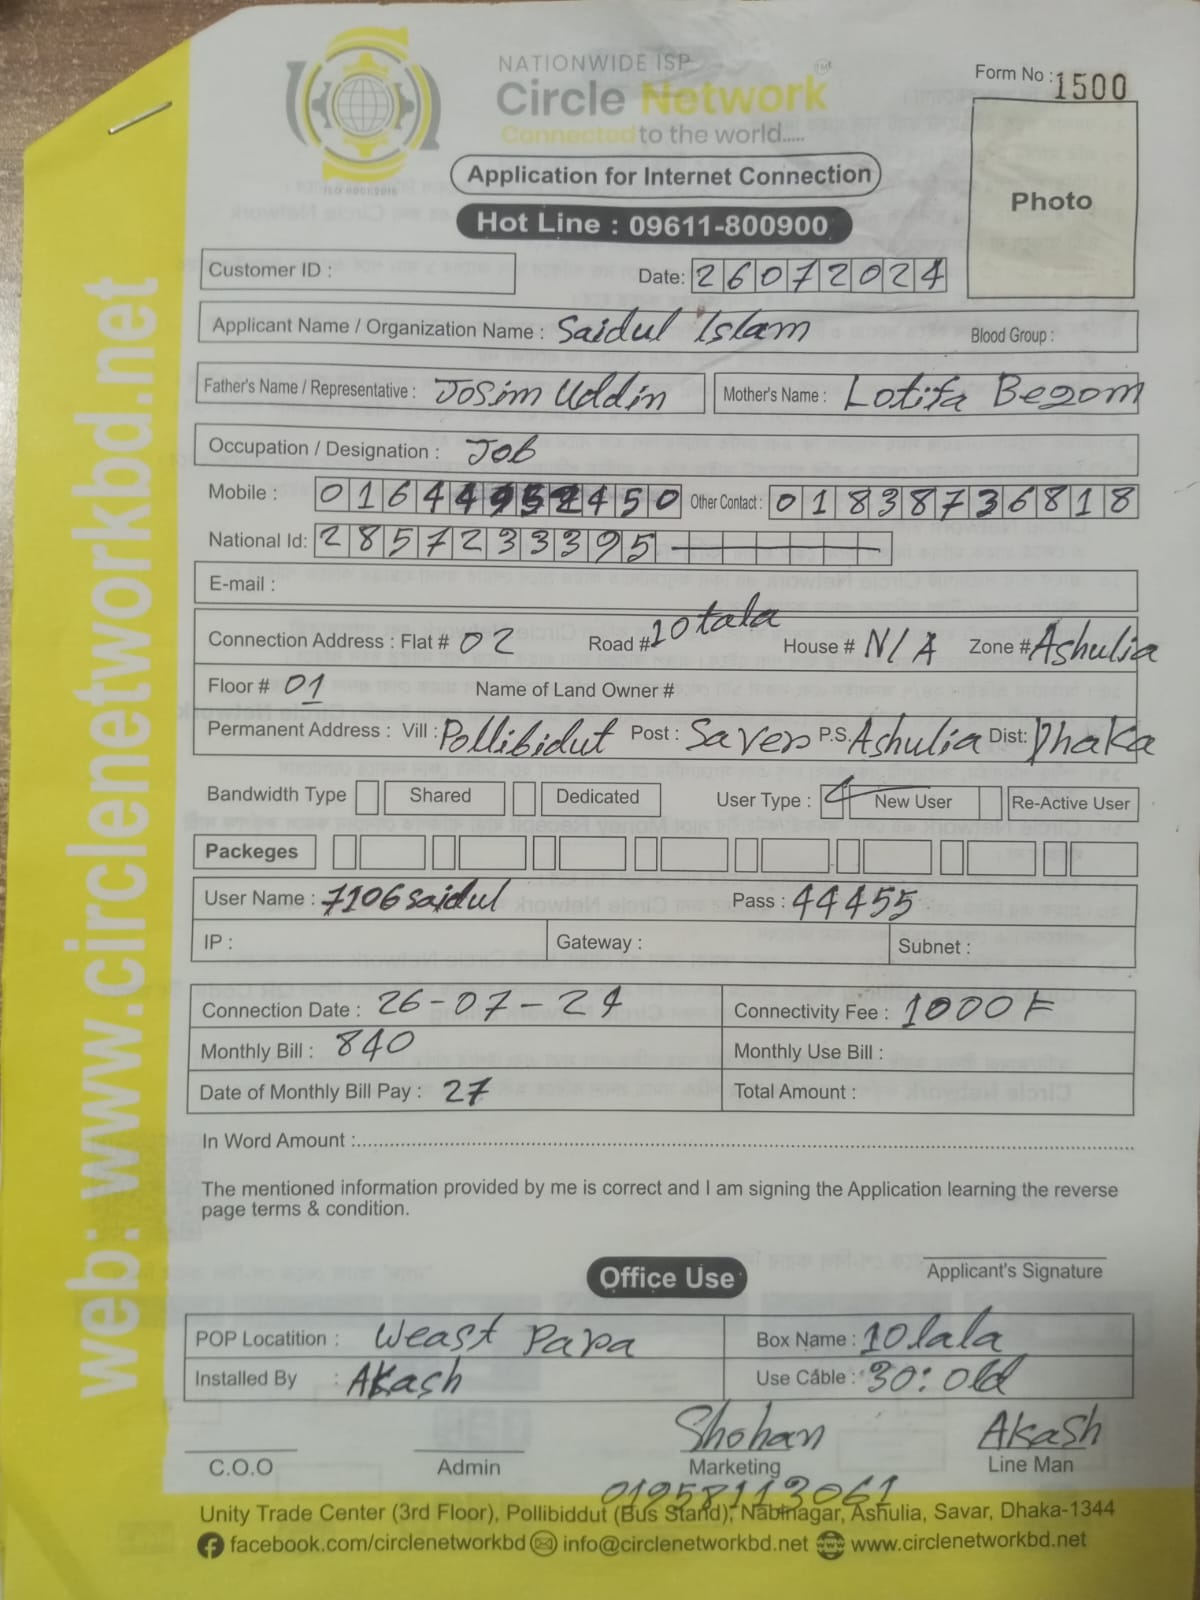 NATIONWIDE ISP
Circle Network
Connected to the world.....
ISO 9001:2015
Form No : 1500
Application for Internet Connection
Photo
Hot Line : 09611-800900
Customer ID :
Date: 26072024
Applicant Name / Organization Name : Saidul Islam Blood Group :
Father's Name / Representative : Josim Uddin Mother's Name : Lotifa Begom
Occupation / Designation : Job
Mobile : 01644952450 Other Contact : 01838736818
National Id: 2857233395
E-mail :
Connection Address : Flat # 02 Road # 10 tala House # N/A Zone # Ashulia
Floor # 01 Name of Land Owner #
Permanent Address : Vill : Pollibidut Post : Saver P.S. Ashulia Dist: Dhaka
Bandwidth Type Shared Dedicated User Type : New User Re-Active User
Packeges
User Name : 7106saidul Pass : 44455
IP : Gateway : Subnet :
Connection Date : 26-07-24 Connectivity Fee : 1000 F
Monthly Bill : 840 Monthly Use Bill :
Date of Monthly Bill Pay : 27 Total Amount :
In Word Amount :
The mentioned information provided by me is correct and I am signing the Application learning the reverse
page terms & condition.
Applicant's Signature
Office Use
POP Locatition : Weast Papa Box Name : 10 lala
Installed By : Akash Use Cable : 30: old
Shohan Akash
C.O.O Admin Marketing Line Man
01958113061
Unity Trade Center (3rd Floor), Pollibiddut (Bus Stand), Nabinagar, Ashulia, Savar, Dhaka-1344
facebook.com/circlenetworkbd info@circlenetworkbd.net www.circlenetworkbd.net
web: www.circlenetworkbd.net